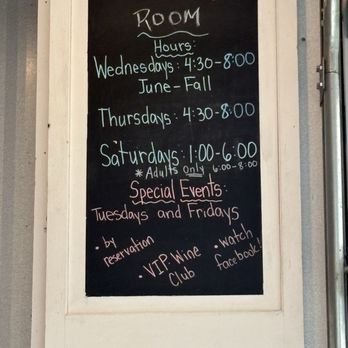 ROOM
Hours:
Wednesdays: 4:30-8:00
June-Fall
Thursdays: 4:30-8:00
Saturdays: 1:00-6:00
* Adults Only 6:00-8:00
Special Events:
Tuesdays and Fridays
• by reservation
• VIP Wine Club
• watch facebook!